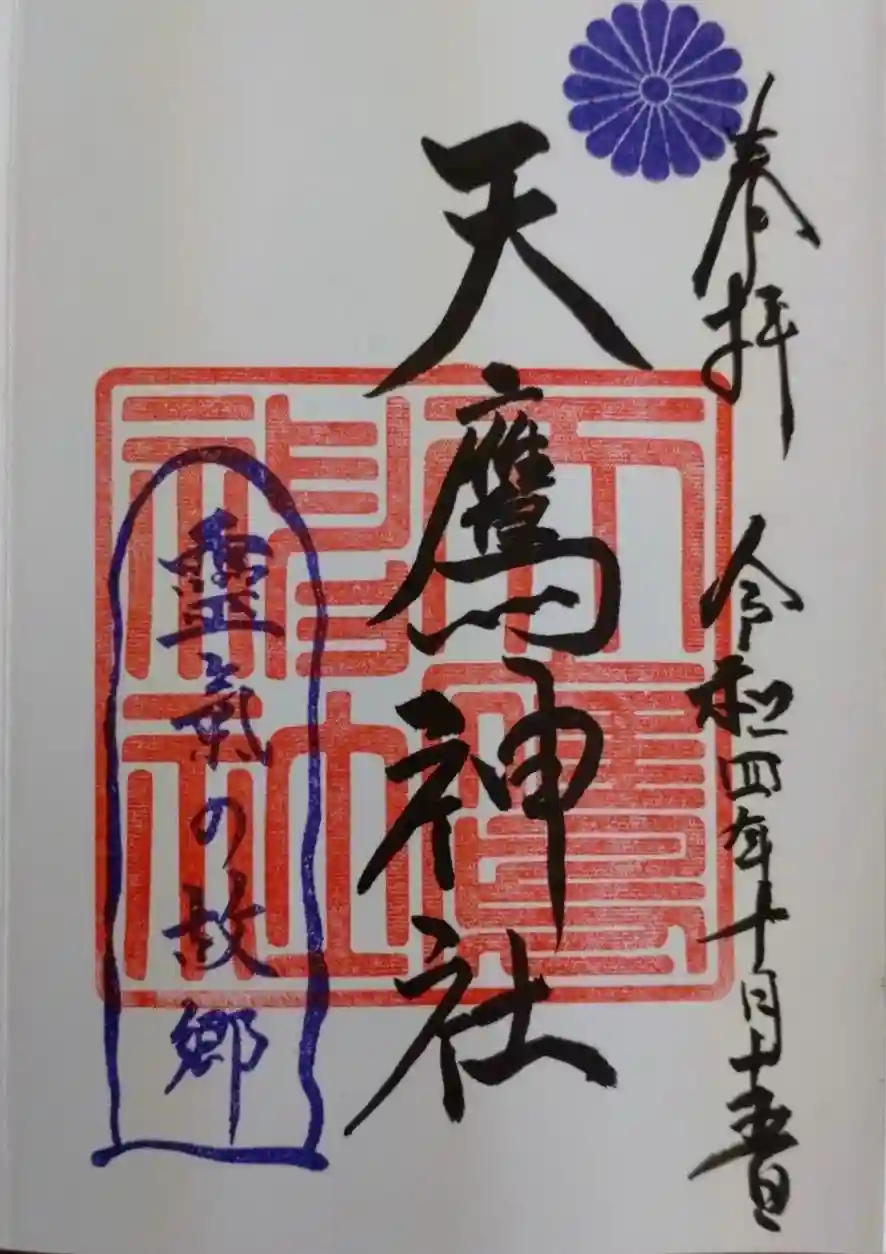 奉拝
令和四年十月十五日
天鷹神社
天鷹神社
靈氣の故郷